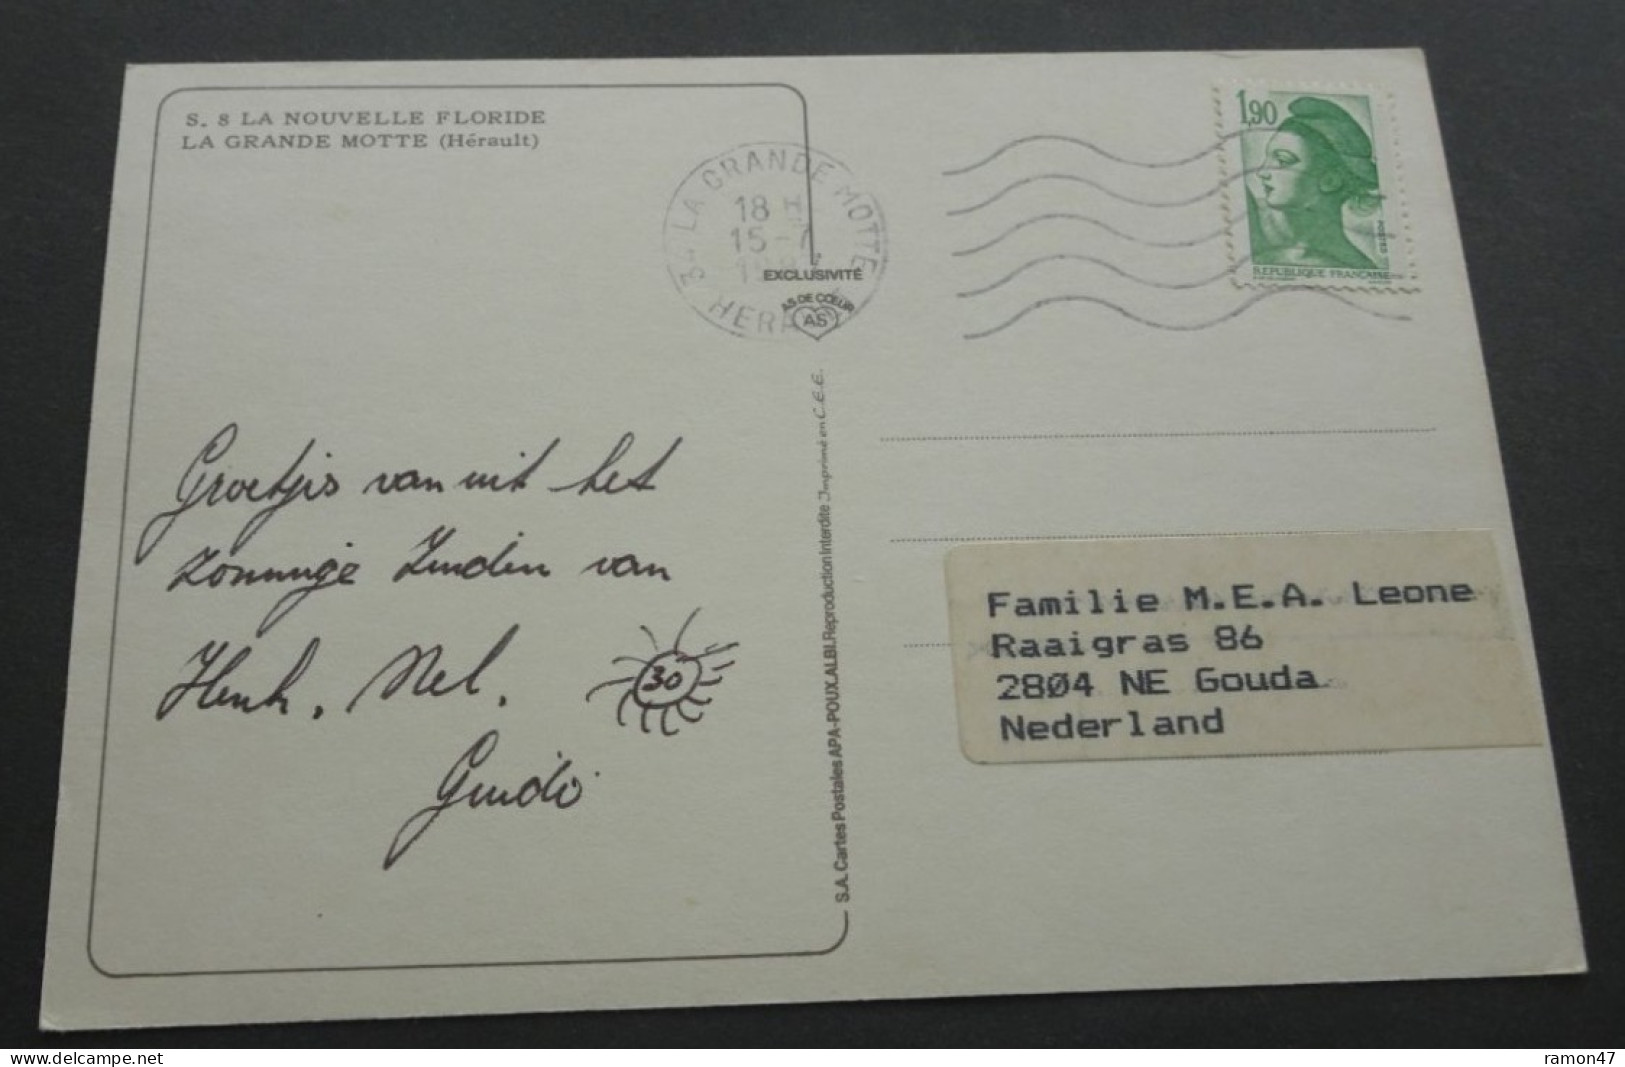 S. 8 LA NOUVELLE FLORIDE
LA GRANDE MOTTE (Hérault)
34 LA GRANDE MOTTE
18 H
15-7
HERAULT
EXCLUSIVITÉ
AS DE CŒUR
AS
1,90
POSTES
REPUBLIQUE FRANÇAISE
Groetjes vanuit het
zonnige Zuiden van
Henk, Nel,
30
Guido
S.A. Cartes Postales APA-POUX.ALBI.Reproduction Interdite Imprimé en C.E.E.
Familie M.E.A. Leone
Raaigras 86
2804 NE Gouda
Nederland
delcampe.net
ramon47